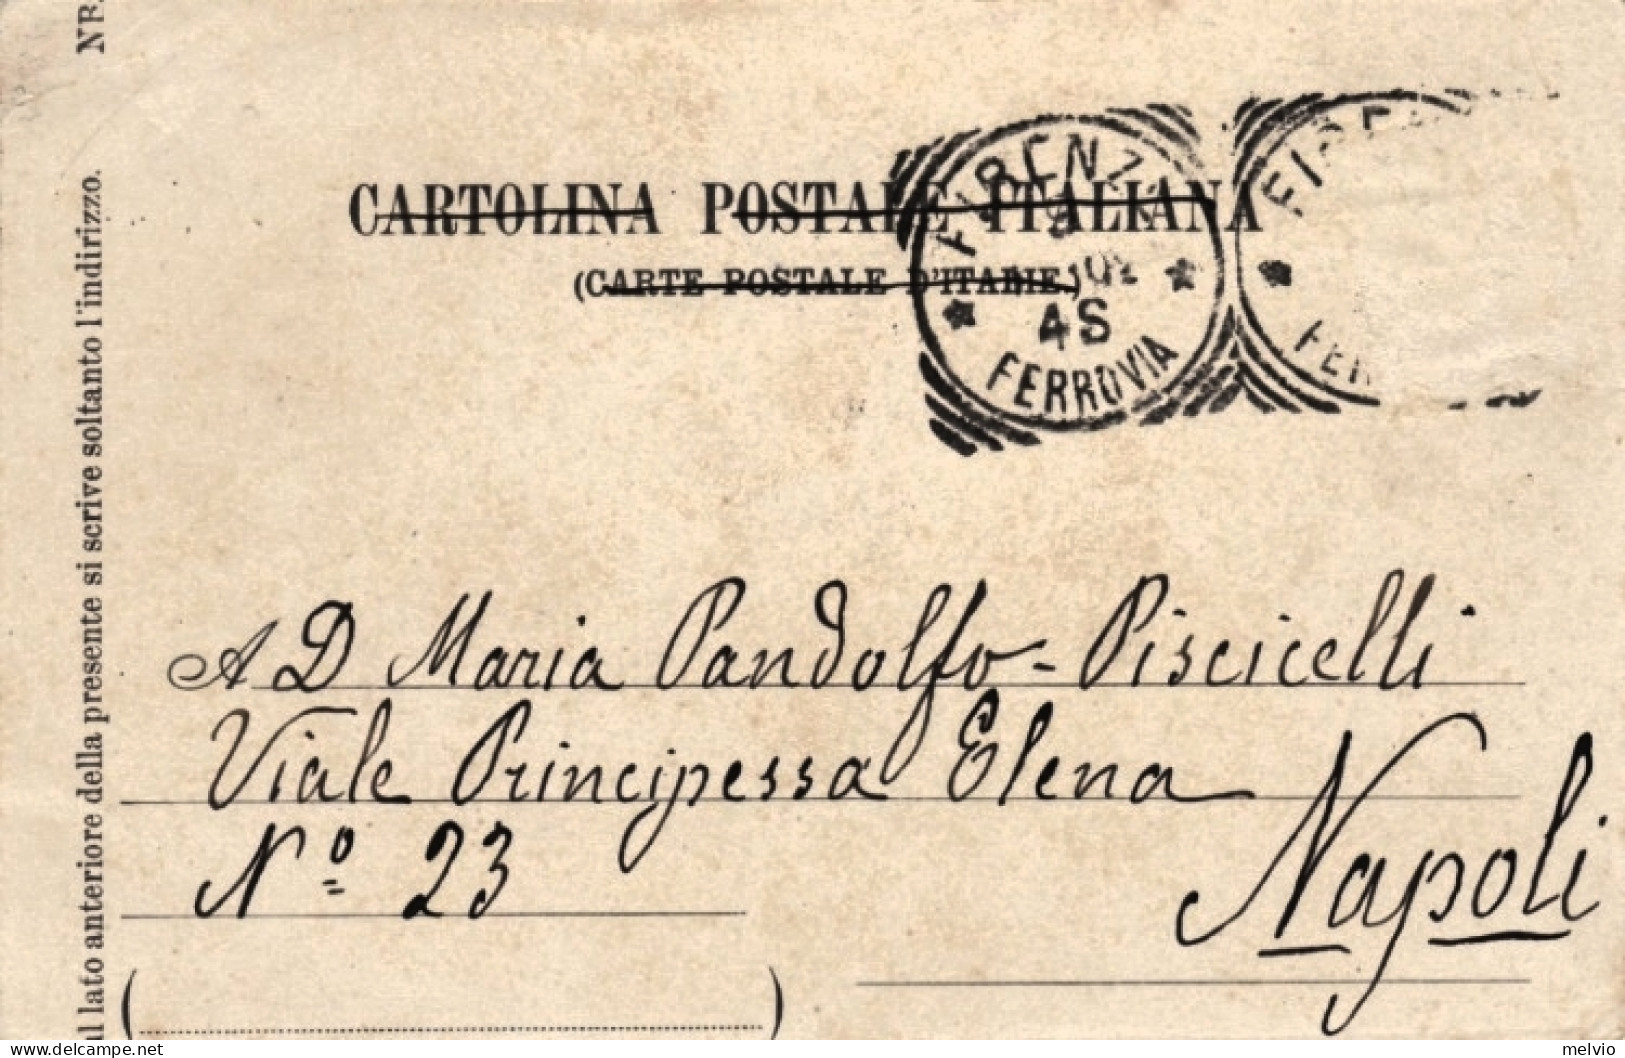 NB. al lato anteriore della presente si scrive soltanto l'indirizzo.
CARTOLINA POSTALE ITALIANA
(CARTE POSTALE D'ITALIE.)
FIRENZE
4S
FERROVIA
A D Maria Pandolfo-Piscicelli
Viale Principessa Elena
Nº 23
Napoli
delcampe.net
melvio